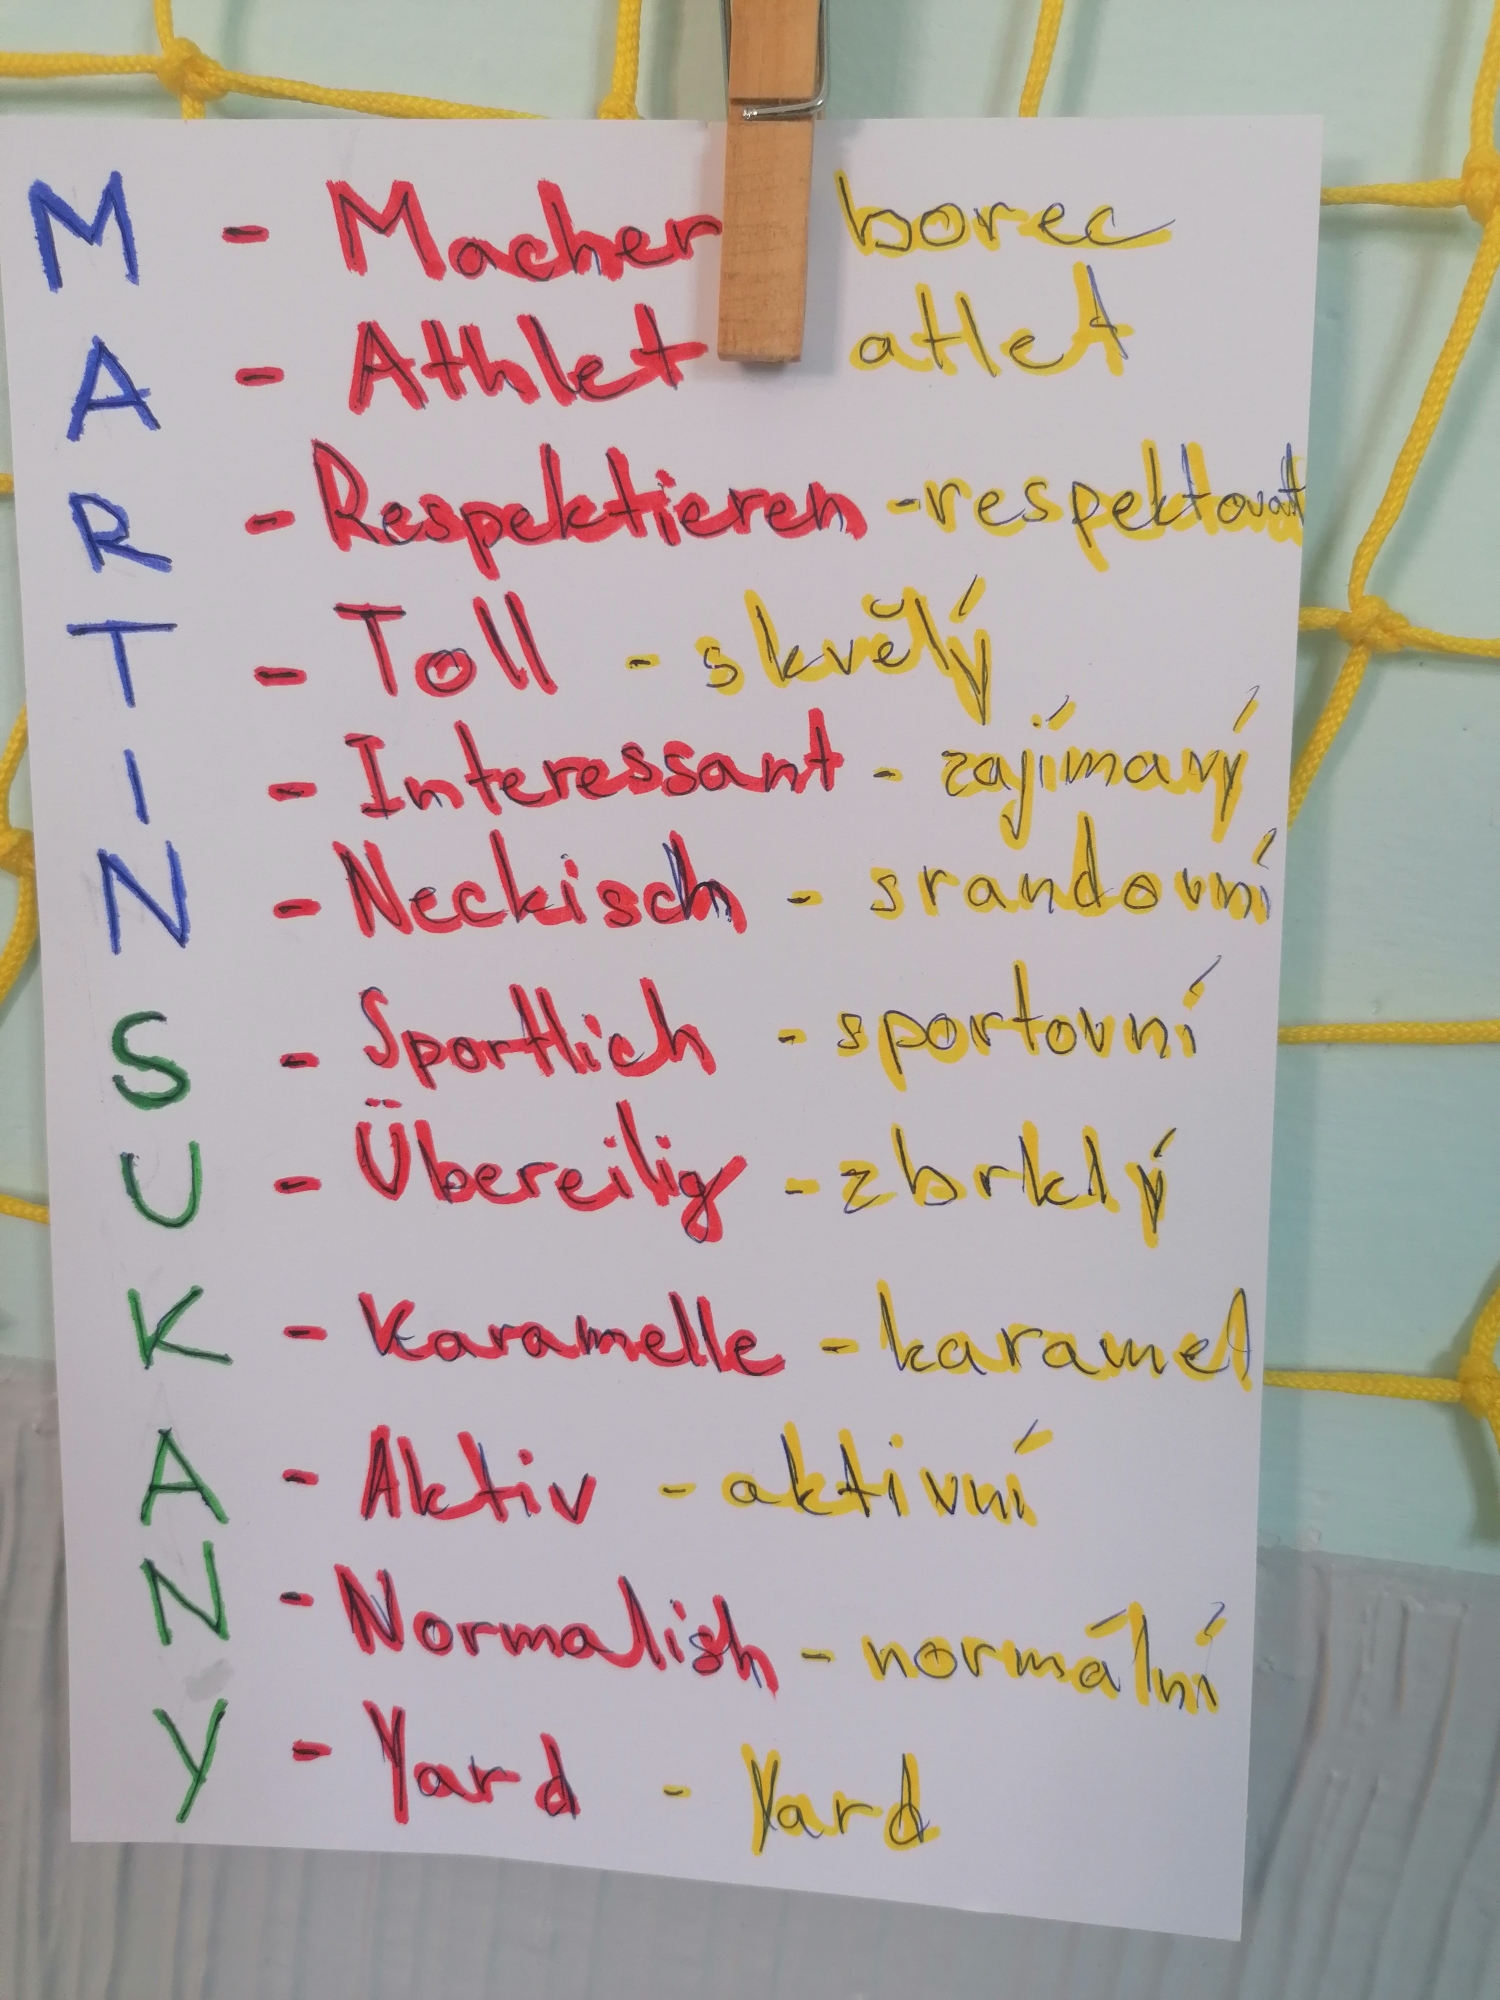 M - Macher borec
A - Athlet atlet
R - Respektieren - respektovat
T - Toll - skvělý
I - Interessant - zajímavý
N - Neckisch - srandovní
S - Sportlich - sportovní
U - Übereilig - zbrklý
K - Karamelle - karamel
A - Aktiv - aktivní
N - Normalish - normální
Y - Yard - Yard